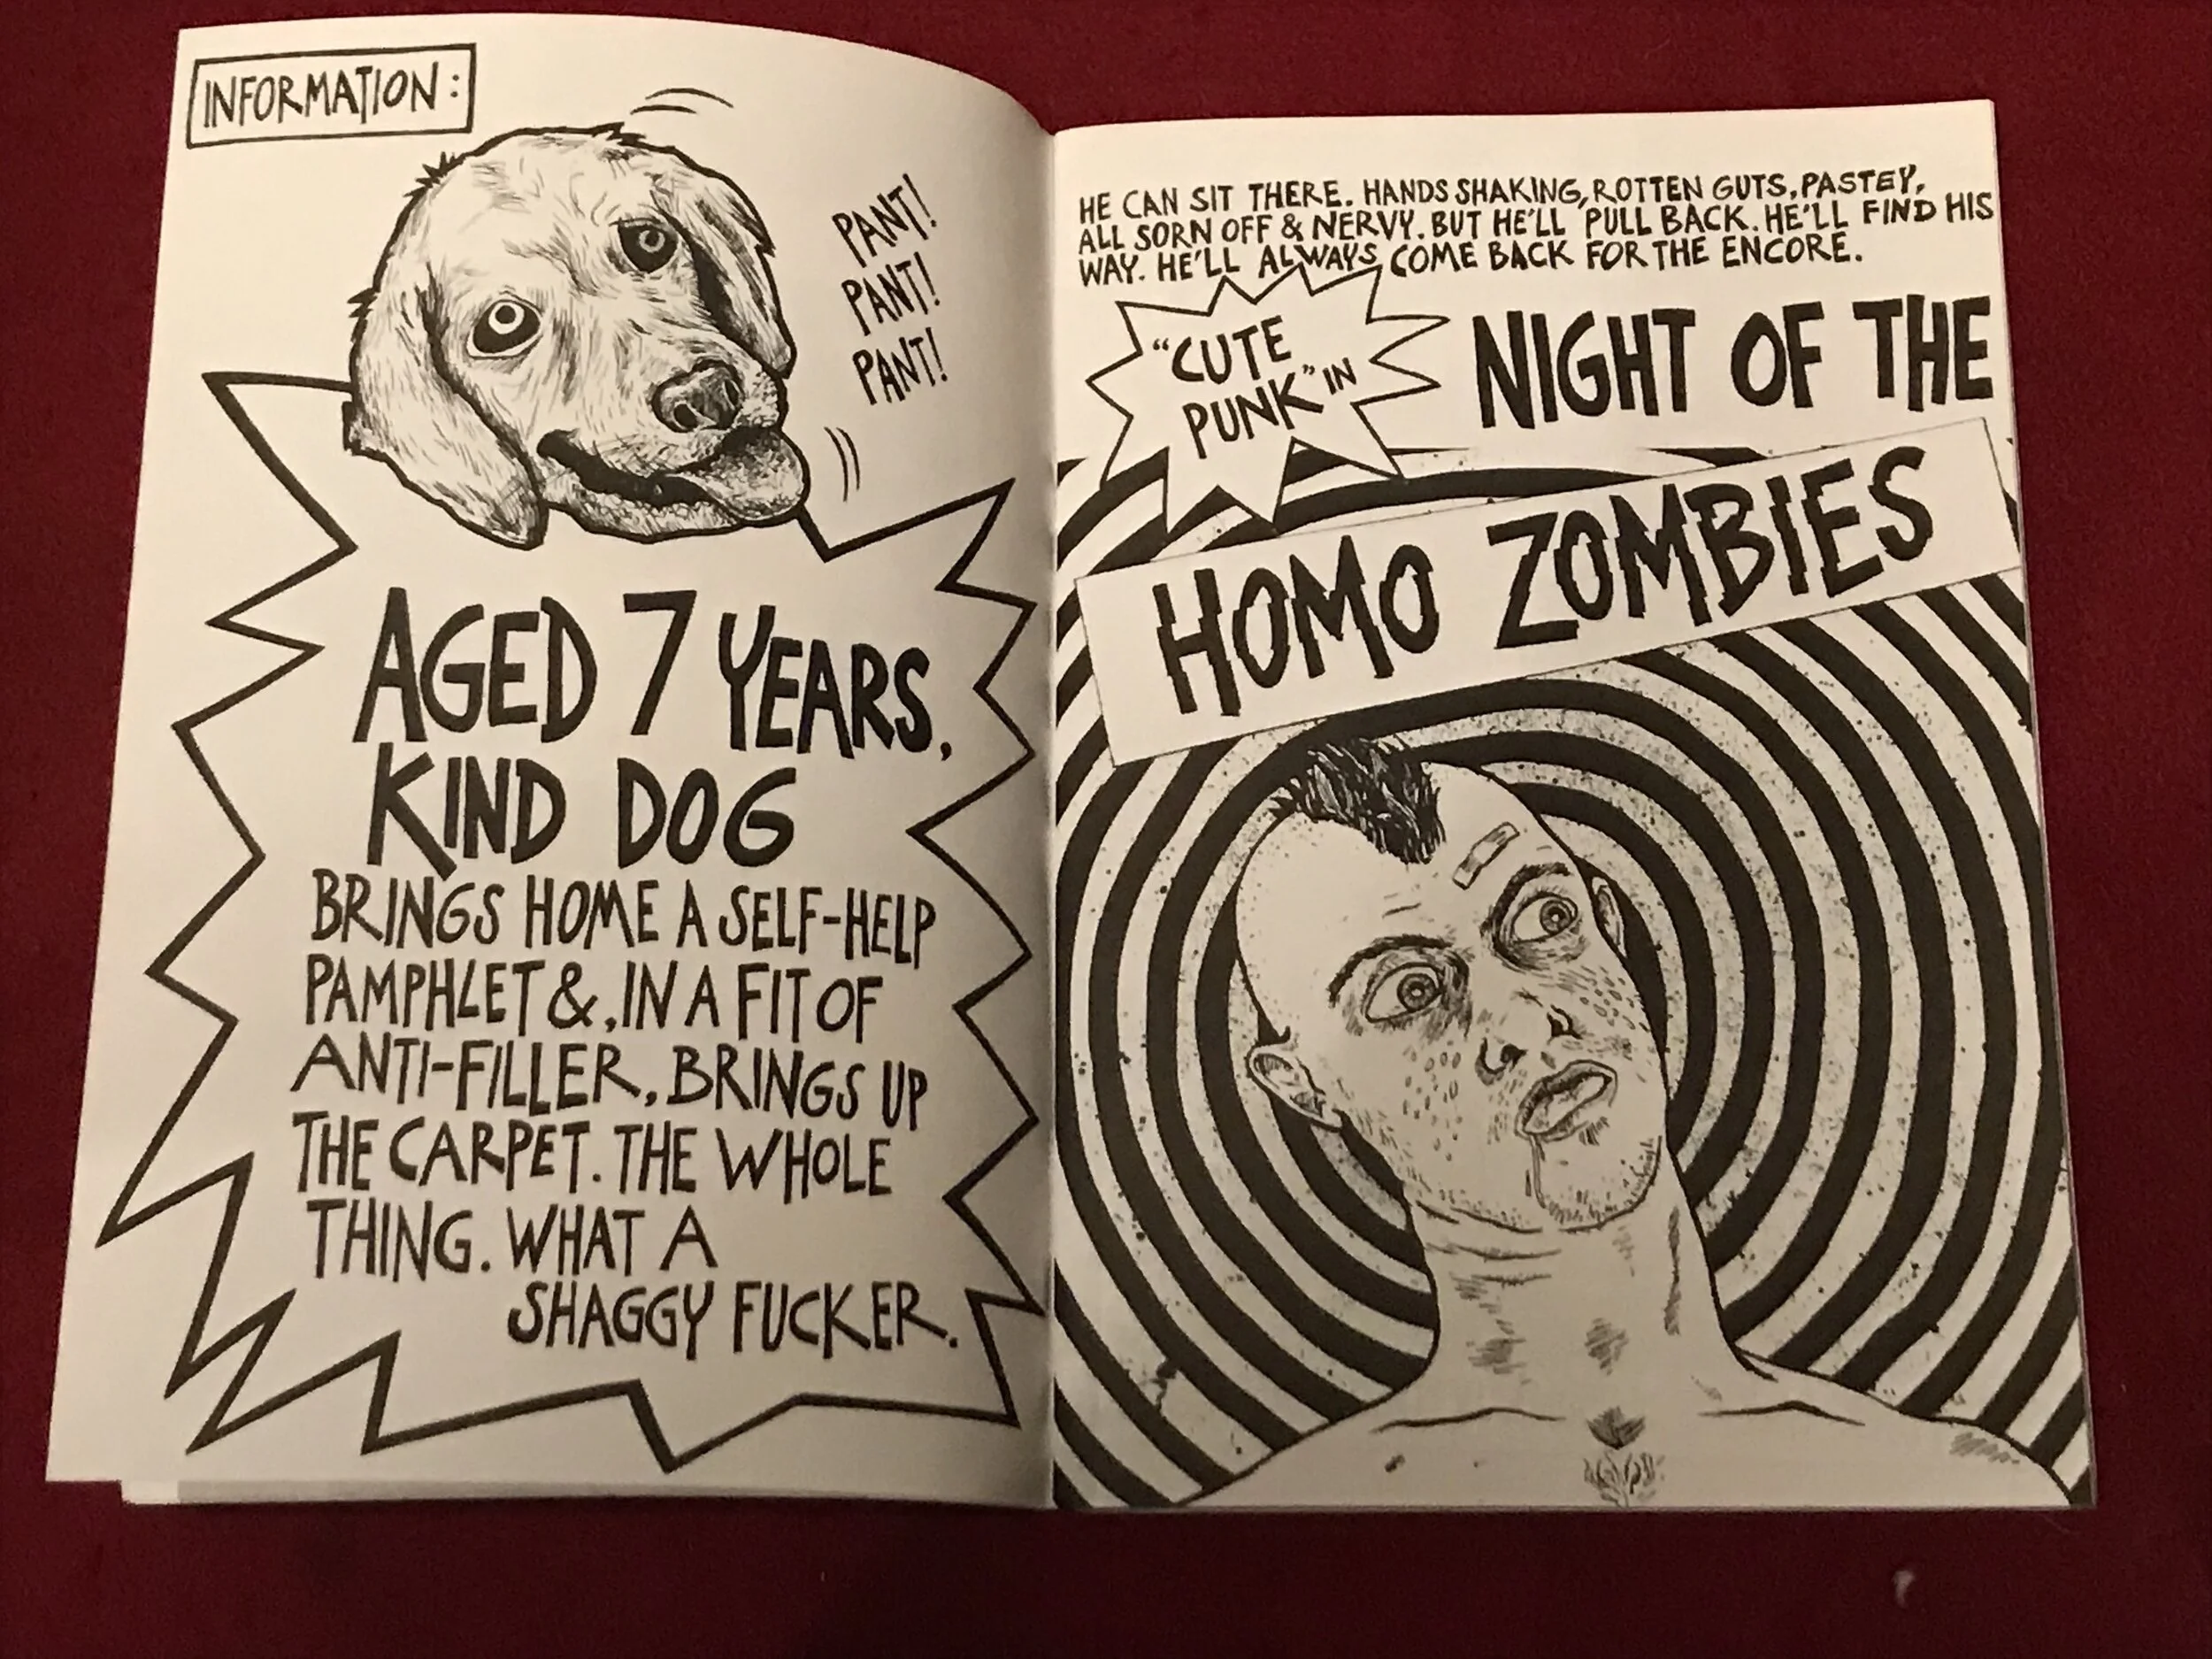 INFORMATION:
PANT!
PANT!
PANT!
AGED 7 YEARS,
KIND DOG
BRINGS HOME A SELF-HELP
PAMPHLET &, IN A FIT OF
ANTI-FILLER, BRINGS UP
THE CARPET. THE WHOLE
THING. WHAT A
SHAGGY FUCKER.
HE CAN SIT THERE. HANDS SHAKING, ROTTEN GUTS, PASTEY,
ALL SORN OFF & NERVY. BUT HE'LL PULL BACK. HE'LL FIND HIS
WAY. HE'LL ALWAYS COME BACK FOR THE ENCORE.
"CUTE
PUNK" IN
NIGHT OF THE
HOMO ZOMBIES